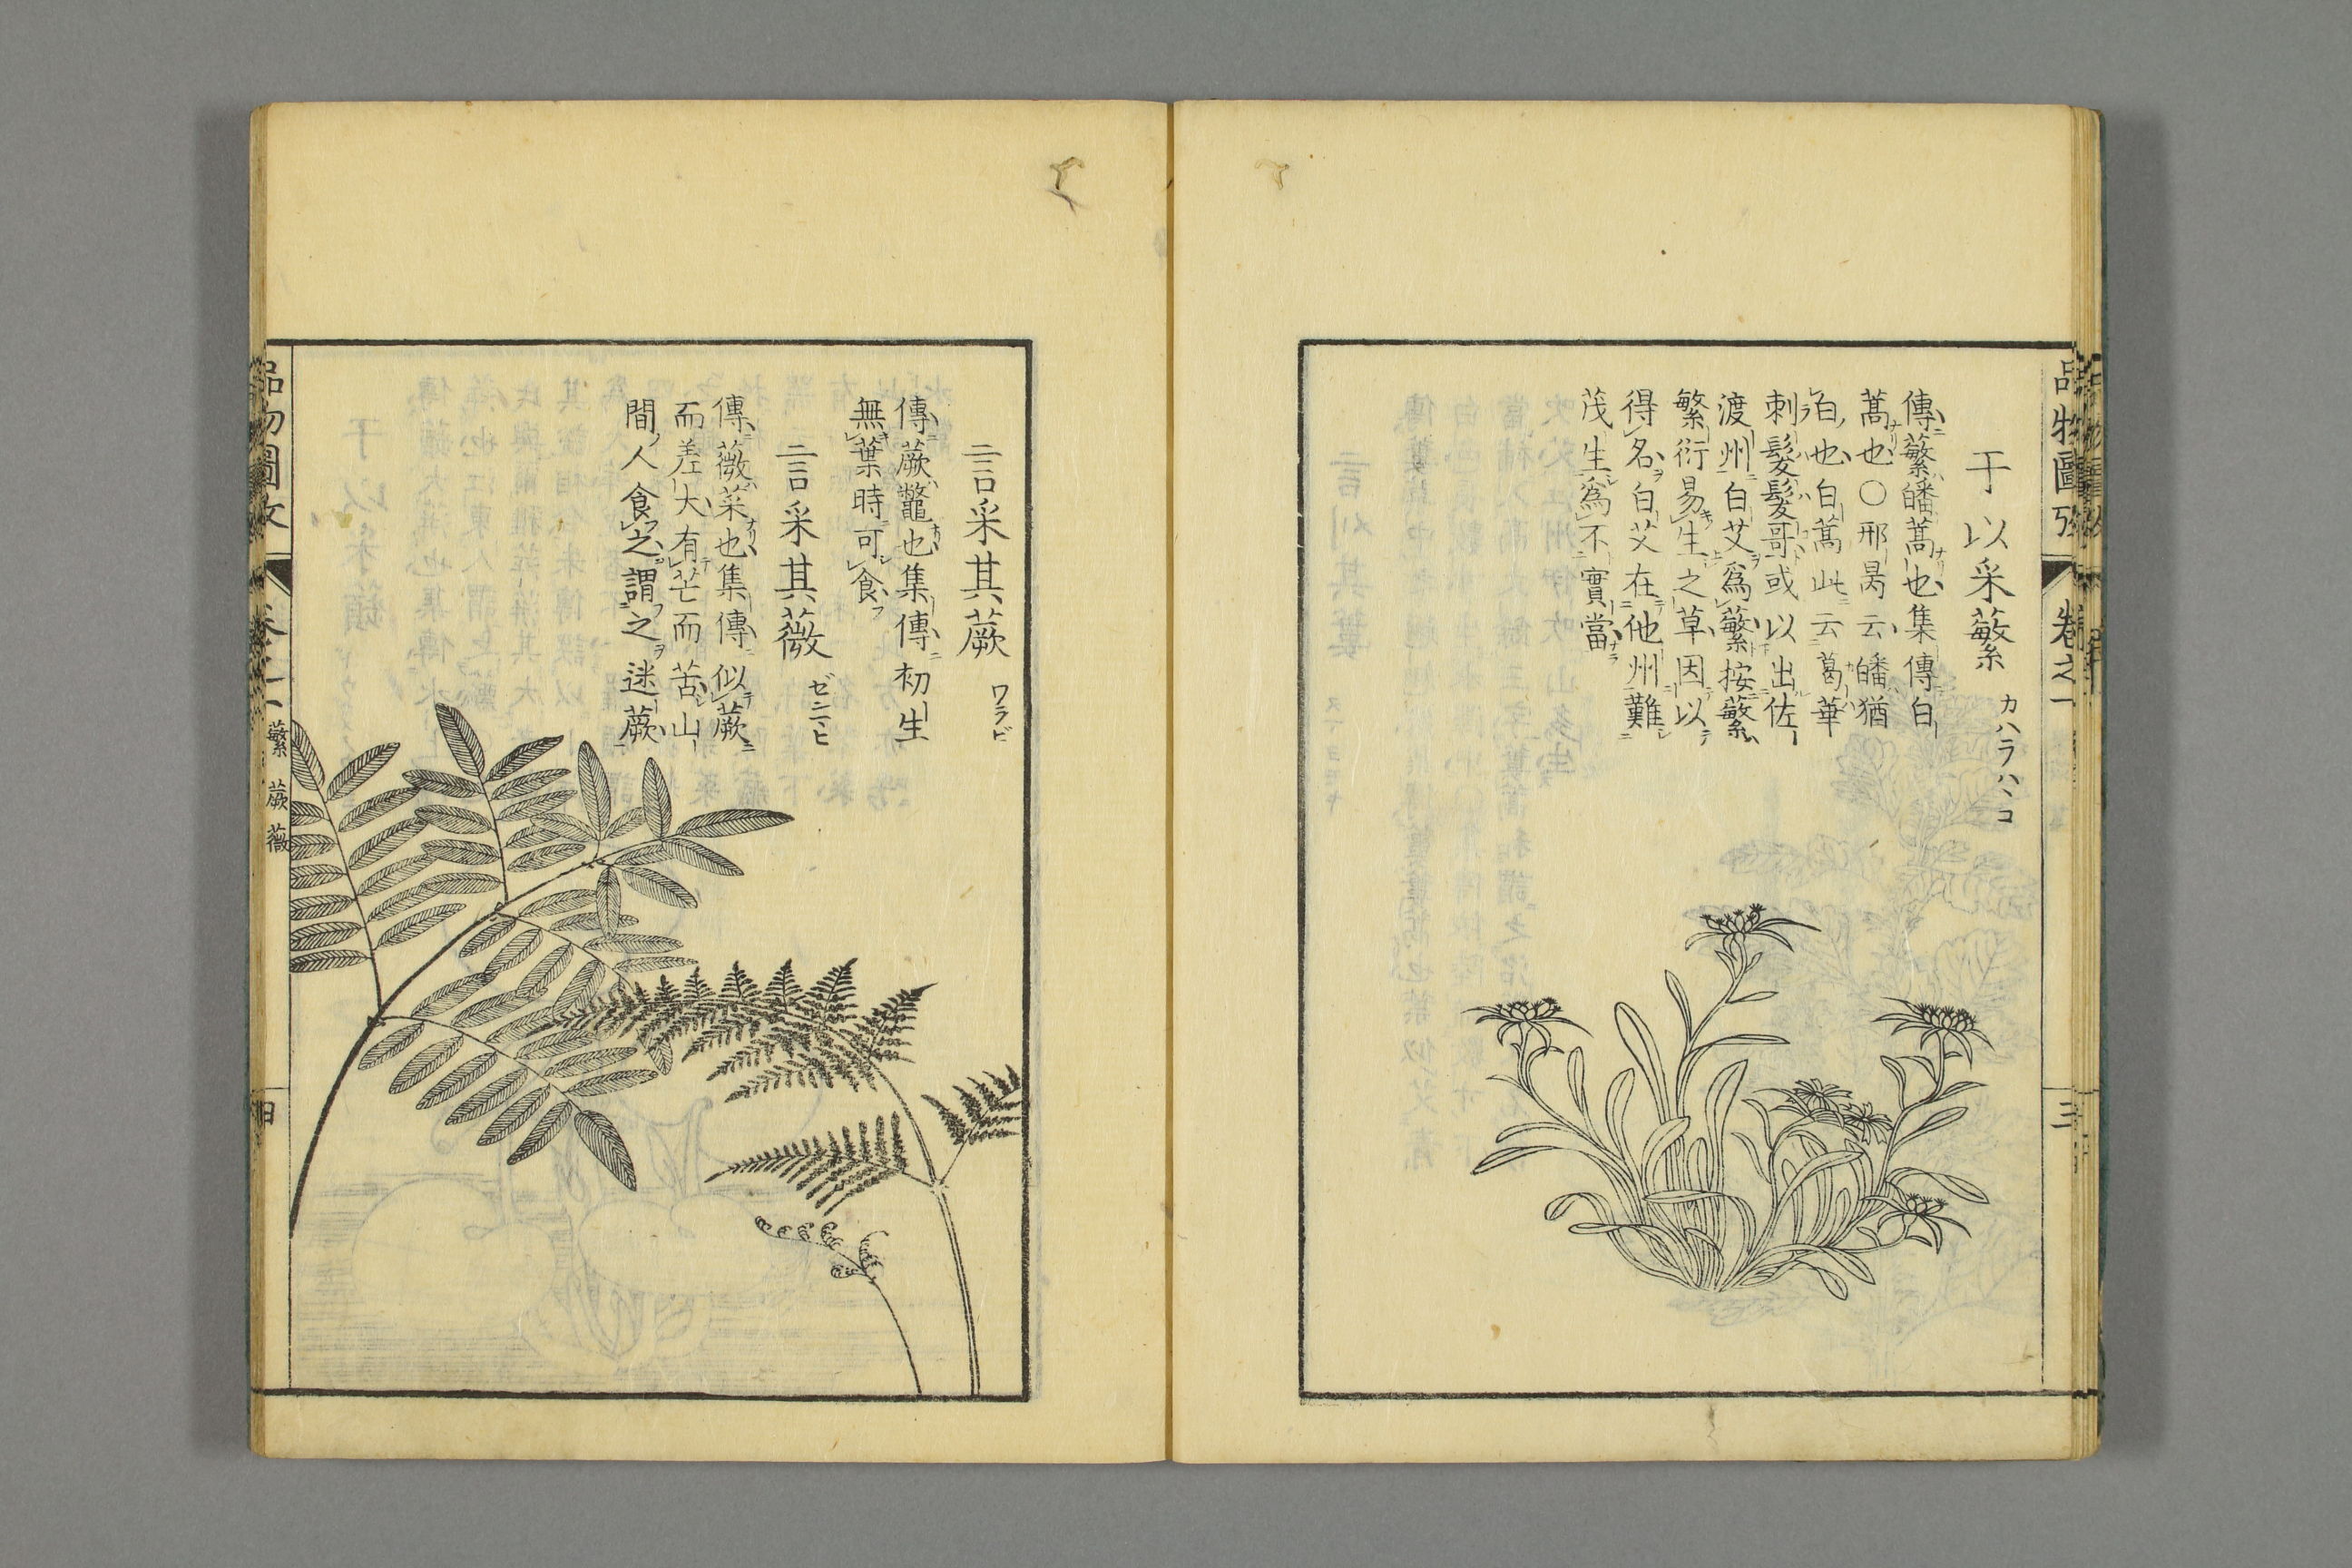 品物圖攷
卷之一
三
于以采蘩 カハラハヽコ
傳蘩皤蒿也集傳白
蒿也○邢昺云皤猶
白也白蒿此云葛華
刺髮髮哥或以出佐
渡州白艾爲蘩按蘩
繁衍易生之草因以
得名白艾在他州難
茂生爲不實當
言采其蕨 ワラビ
傳蕨鼈也集傳初生
無葉時可食
言采其薇 ゼンマヒ
傳薇菜也集傳似蕨
而差大有芒而苦山
間人食之謂之迷蕨
品物圖攷
卷之一
蘩 蕨 薇
四